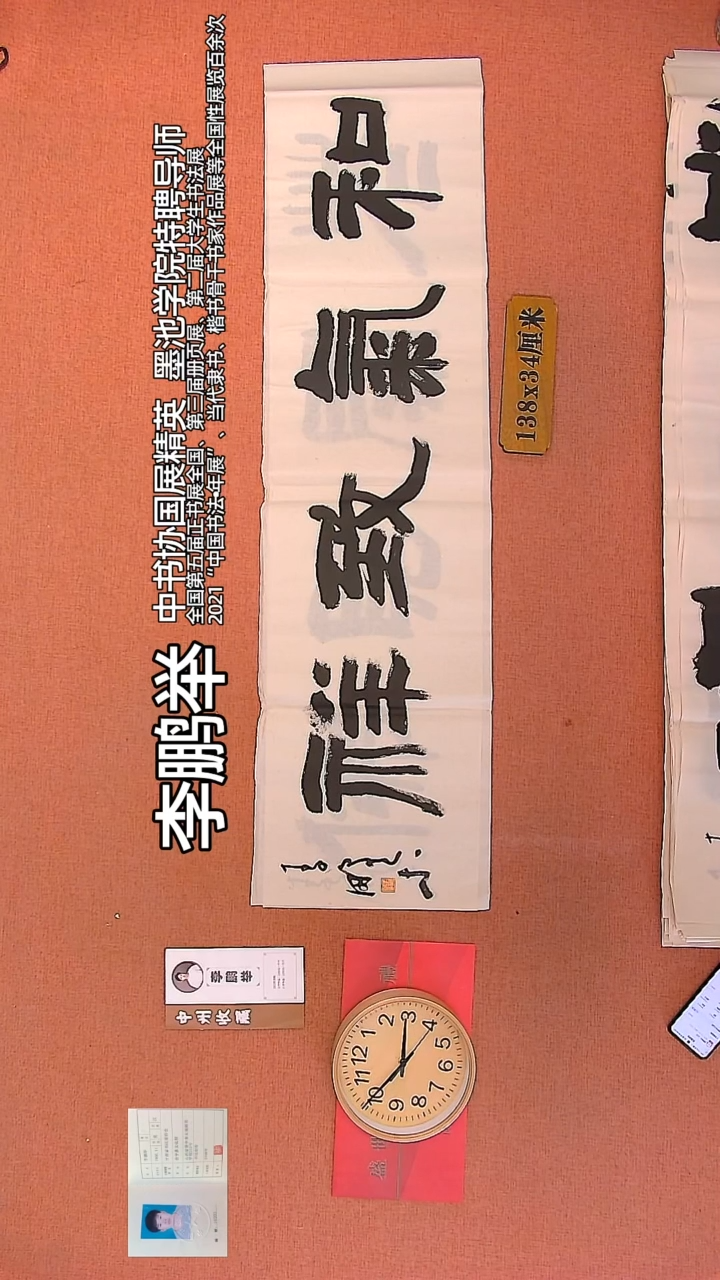 李鹏举
中书协国展精英 墨池学院特聘导师
全国第五届正书展全国、第三届册页展、第二届大学生书法展
2021“中国书法·年展”、当代隶书、楷书骨干书家作品展等全国性展览百余次
和氣致祥
138x34厘米
李鹏举
中州收藏
12
1
2
3
4
5
6
7
8
9
10
11